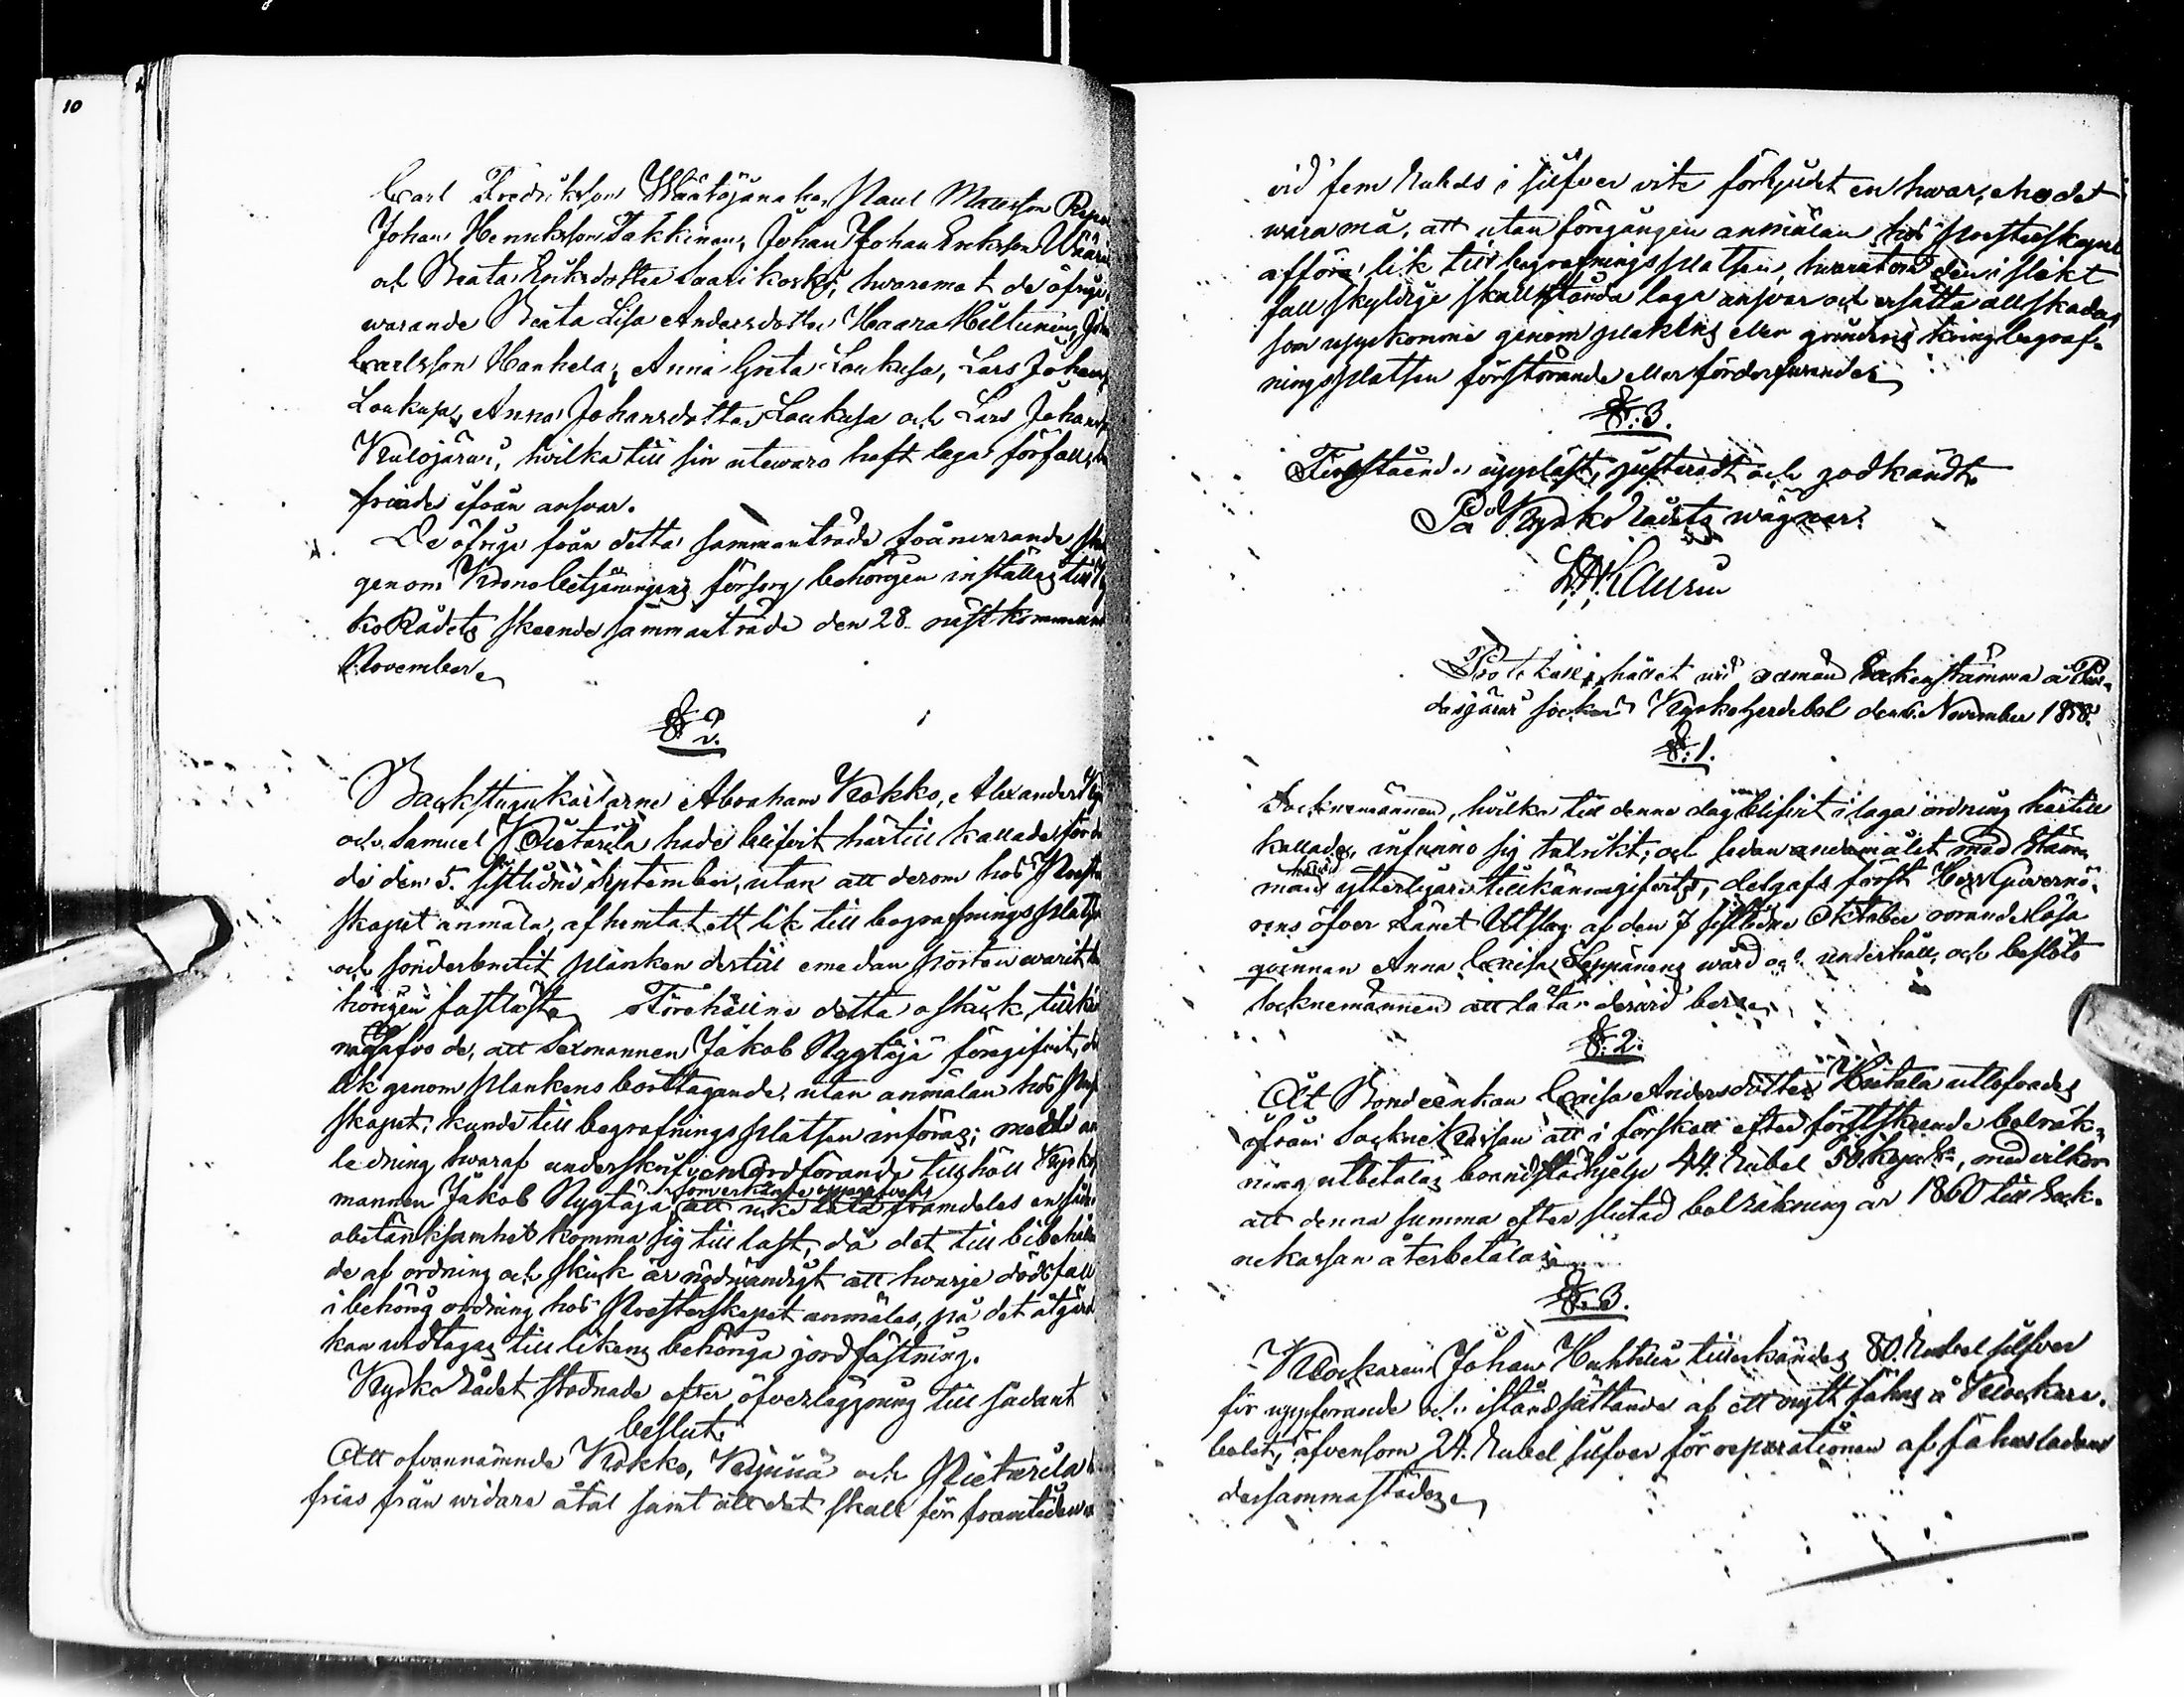 10
Carl Fredriksson Määtäjänaho, Paul Matsson
Johan Henriksson Takkinen, Johan Johan Eriksson
och Beata Eriksdotter Saarikoski, hwaremot de öfrige
warande Beata Lisa Andersdotter Haara Hiltunen,
Carlsson Hanhela, Anna Greta Loukusa, Lars Johans
Loukusa, Anna Johansdotter Loukusa och Lars Johans
Kulojärwi, hvilka till sin utewaro haft laga förfall,
friades ifrån answar.
De öfrige från detta sammanträde frånwarande
genom Kronobetjeningens försorg behörigen inställas till
koRådets skeende sammanträde den 28 nästkommand
November.
§ 2.
Backstugukarlarne Abraham Kokko, Alexander
och Samuel Pietarila hade blifvit härtill kallade för
de den 5. sistledne September, utan att derom hos Prester
skapet anmäla, afhemtat ett lik till begrafningsplatsen
och sönderbrutit planken dertill emedan porten warit
hörigen fastläst. Förehållne detta oskick, tillkän
nagåfvo de, att Sexmannen Jakob Nygtäjä föregifvit,
lik genom plankens borttagande, utan anmälan hos
skapet, kunde till begrafningsplatsen införas; med
ledning hwaraf underskrifven Ordförande tillhöll Kyrko
som erkände uppgifvas
mannen Jakob Nygtäjä att icke låta framdeles en
obetänksamhet komma sig till last, då det till bibehållan
de af ordning och skick är nödwändigt att hwarje dödsfall
i behörig ordning hos Presterskapet anmäles, på det åtgärd
kan widtagas till likens behöriga jordfästning.
KyrkoRådet stadnade efter öfverläggning till sådant
beslut:
Att ofvannämnde Kokko, Kejunä och Pietarila
frias från widare åtal samt att det skall för framtiden
vid fem Rubels i silfver vite förbjudet en hwar, eho det
wara må, att utan föregången anmälan hos Presterskapet
afföra lik till begrafningsplatsen, hwarutom den i slikt
fall skyldige skall stånda laga answar och ersätta all skada,
som uppkomme genom plankens eller grindens kring begraf-
ningsplatsen förstörande eller förderfwande.
§. 3.
Förestående uppläst, justeradt och godkändt.
På KyrkoRådets wägnar:
Protokoll, hållet wid allmän Sockenstämma å Pu-
dasjärwi socknes Kyrkoherdebol den 6. November 1858.
§. 1.
Socknemännen, hvilka till denne dag blifvit i laga ordning härtill
kallade, infunno sig talrikt; och sedan ändamålet med Stäm-
man ytterligare tillkännagifvits, delgafs först Herr Guvernö-
rens öfver Länet Utslag af den 7 sistledne Oktober rörande lösa
qvinnan Anna Caisa Seppänens wård och underhåll, och beslöto
Socknemännen att låta derwid bero.
§. 2.
Åt Bondeenkan Caisa Andersdotter Hietala utlofwades
ifrån SockneKassan att i förskott efter förstskeende bolräk-
ning utbetalas brandskadehjelp 44. Rubel 50. kop. S:r, med vilkor
att denna summa efter slutad bolräkning år 1860 till Sock-
nekassan återbetalas.
§. 3.
Klockaren Johan Huhtela tillerkändes 80. Rubel silfver
för uppförande och iståndsättande af ett nytt fähus å Klockare-
bolet, äfvensom 24. Rubel silfver för reparationen af fähusladan
dersammastädes.